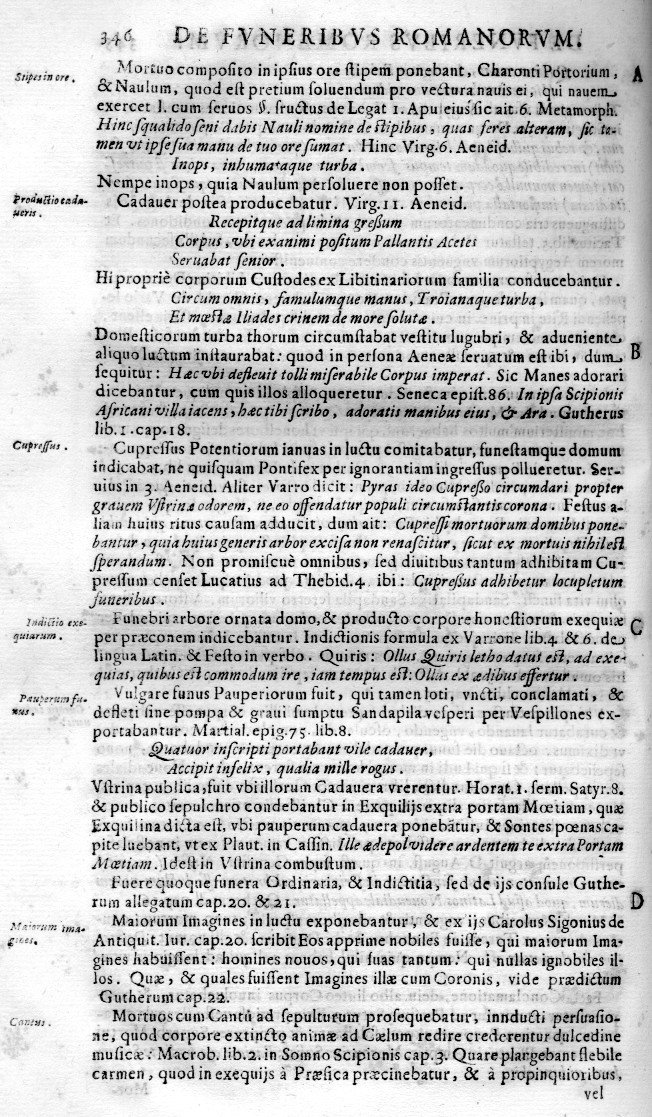 346 DE FVNERIBVS ROMANORVM.
Stipes in ore.
Mortuo composito in ipsius ore stipem ponebant, Charonti Portorium, A
& Naulum, quod est pretium soluendum pro vectura nauis ei, qui nauem
exercet l. cum seruos §. fructus de Legat 1. Apuleius sic ait 6. Metamorph.
Hinc squalido seni dabis Nauli nomine de stipibus, quas feres alteram, sic ta-
men vt ipse sua manu de tuo ore sumat. Hinc Virg. 6. Aeneid.
Inops, inhumataque turba.
Nempe inops, quia Naulum persoluere non posset.
Productio cada-
ueris.
Cadauer postea producebatur. Virg. 11. Aeneid.
Recepitque ad limina gressum
Corpus, vbi exanimi positum Pallantis Acetes
Seruabat senior.
Hi propriè corporum Custodes ex Libitinariorum familia conducebantur.
Circum omnis, famulumque manus, Troianaque turba,
Et mœstæ Iliades crinem de more solutæ.
Domesticorum turba thorum circumstabat vestitu lugubri, & adueniente
aliquo luctum instaurabat: quod in persona Aeneæ seruatum est ibi, dum B
sequitur: Hæc vbi defleuit tolli miserabile Corpus imperat. Sic Manes adorari
dicebantur, cum quis illos alloqueretur. Seneca epist. 86. In ipsa Scipionis
Africani villa iacens, hæc tibi scribo, adoratis manibus eius, & Ara. Gutherus
lib. 1. cap. 18.
Cupressus.
Cupressus Potentiorum ianuas in luctu comitabatur, funestamque domum
indicabat, ne quisquam Pontifex per ignorantiam ingressus pollueretur. Ser-
uius in 3. Aeneid. Aliter Varro dicit: Pyras ideo Cupresso circumdari propter
grauem Vstrinæ odorem, ne eo offendatur populi circumstantis corona. Festus a-
liam huius ritus causam adducit, dum ait: Cupressi mortuorum domibus pone-
bantur, quia huius generis arbor excisa non renascitur, sicut ex mortuis nihil est
sperandum. Non promiscuè omnibus, sed diuitibus tantum adhibitam Cu-
pressum censet Lucatius ad Thebid. 4. ibi: Cupressus adhibetur locupletum
funeribus.
Indictio exe-
quiarum.
Funebri arbore ornata domo, & producto corpore honestiorum exequiæ C
per præconem indicebantur. Indictionis formula ex Varrone lib. 4. & 6. de
lingua Latin. & Festo in verbo. Quiris: Ollus Quiris letho datus est, ad exe-
quias, quibus est commodum ire, iam tempus est: Ollas ex ædibus effertur.
Pauperum fu-
nus.
Vulgare funus Pauperiorum fuit, qui tamen loti, vncti, conclamati, &
defleti sine pompa & graui sumptu Sandapila vesperi per Vespillones ex-
portabantur. Martial. epig. 75. lib. 8.
Quatuor inscripti portabant vile cadauer,
Accipit infelix, qualia mille rogus.
Vstrina publica, fuit vbi illorum Cadauera vrerentur. Horat. 1. serm. Satyr. 8.
& publico sepulchro condebantur in Exquilijs extra portam Mœtiam, quæ
Exquilina dicta est, vbi pauperum cadauera ponebātur, & Sontes pœnas ca-
pite luebant, vt ex Plaut. in Cassin. Ille ædepol videre ardentem te extra Portam
Mœtiam. Idest in Vstrina combustum.
Fuere quoque funera Ordinaria, & Indictitia, sed de ijs consule Guthe-
rum allegatum cap. 20. & 21. D
Maiorum ima-
gines.
Maiorum Imagines in luctu exponebantur, & ex ijs Carolus Sigonius de
Antiquit. Iur. cap. 20. scribit Eos apprime nobiles fuisse, qui maiorum Ima-
gines habuissent: homines nouos, qui suas tantum: qui nullas ignobiles il-
los. Quæ, & quales fuissent Imagines illæ cum Coronis, vide prædictum
Gutherum cap. 22.
Cantus.
Mortuos cum Cantù ad sepulturum prosequebatur, innducti persuasio-
ne, quod corpore extincto animæ ad Cælum redire crederentur dulcedine
musicæ: Macrob. lib. 2. in Somno Scipionis cap. 3. Quare plangebant flebile
carmen, quod in exequijs à Præfica præcinebatur, & à propinquioribus,
vel